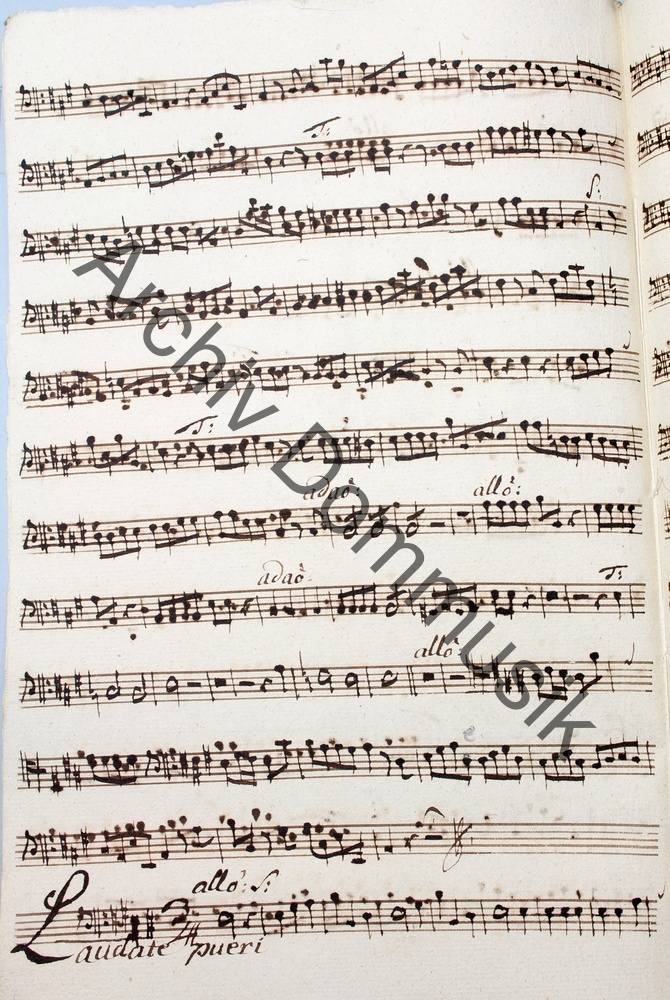 T:
S:
T:
adaõ: allõ:
adaõ: T:
allõ:
allõ: S:
Laudate pueri
Archiv Dommusik